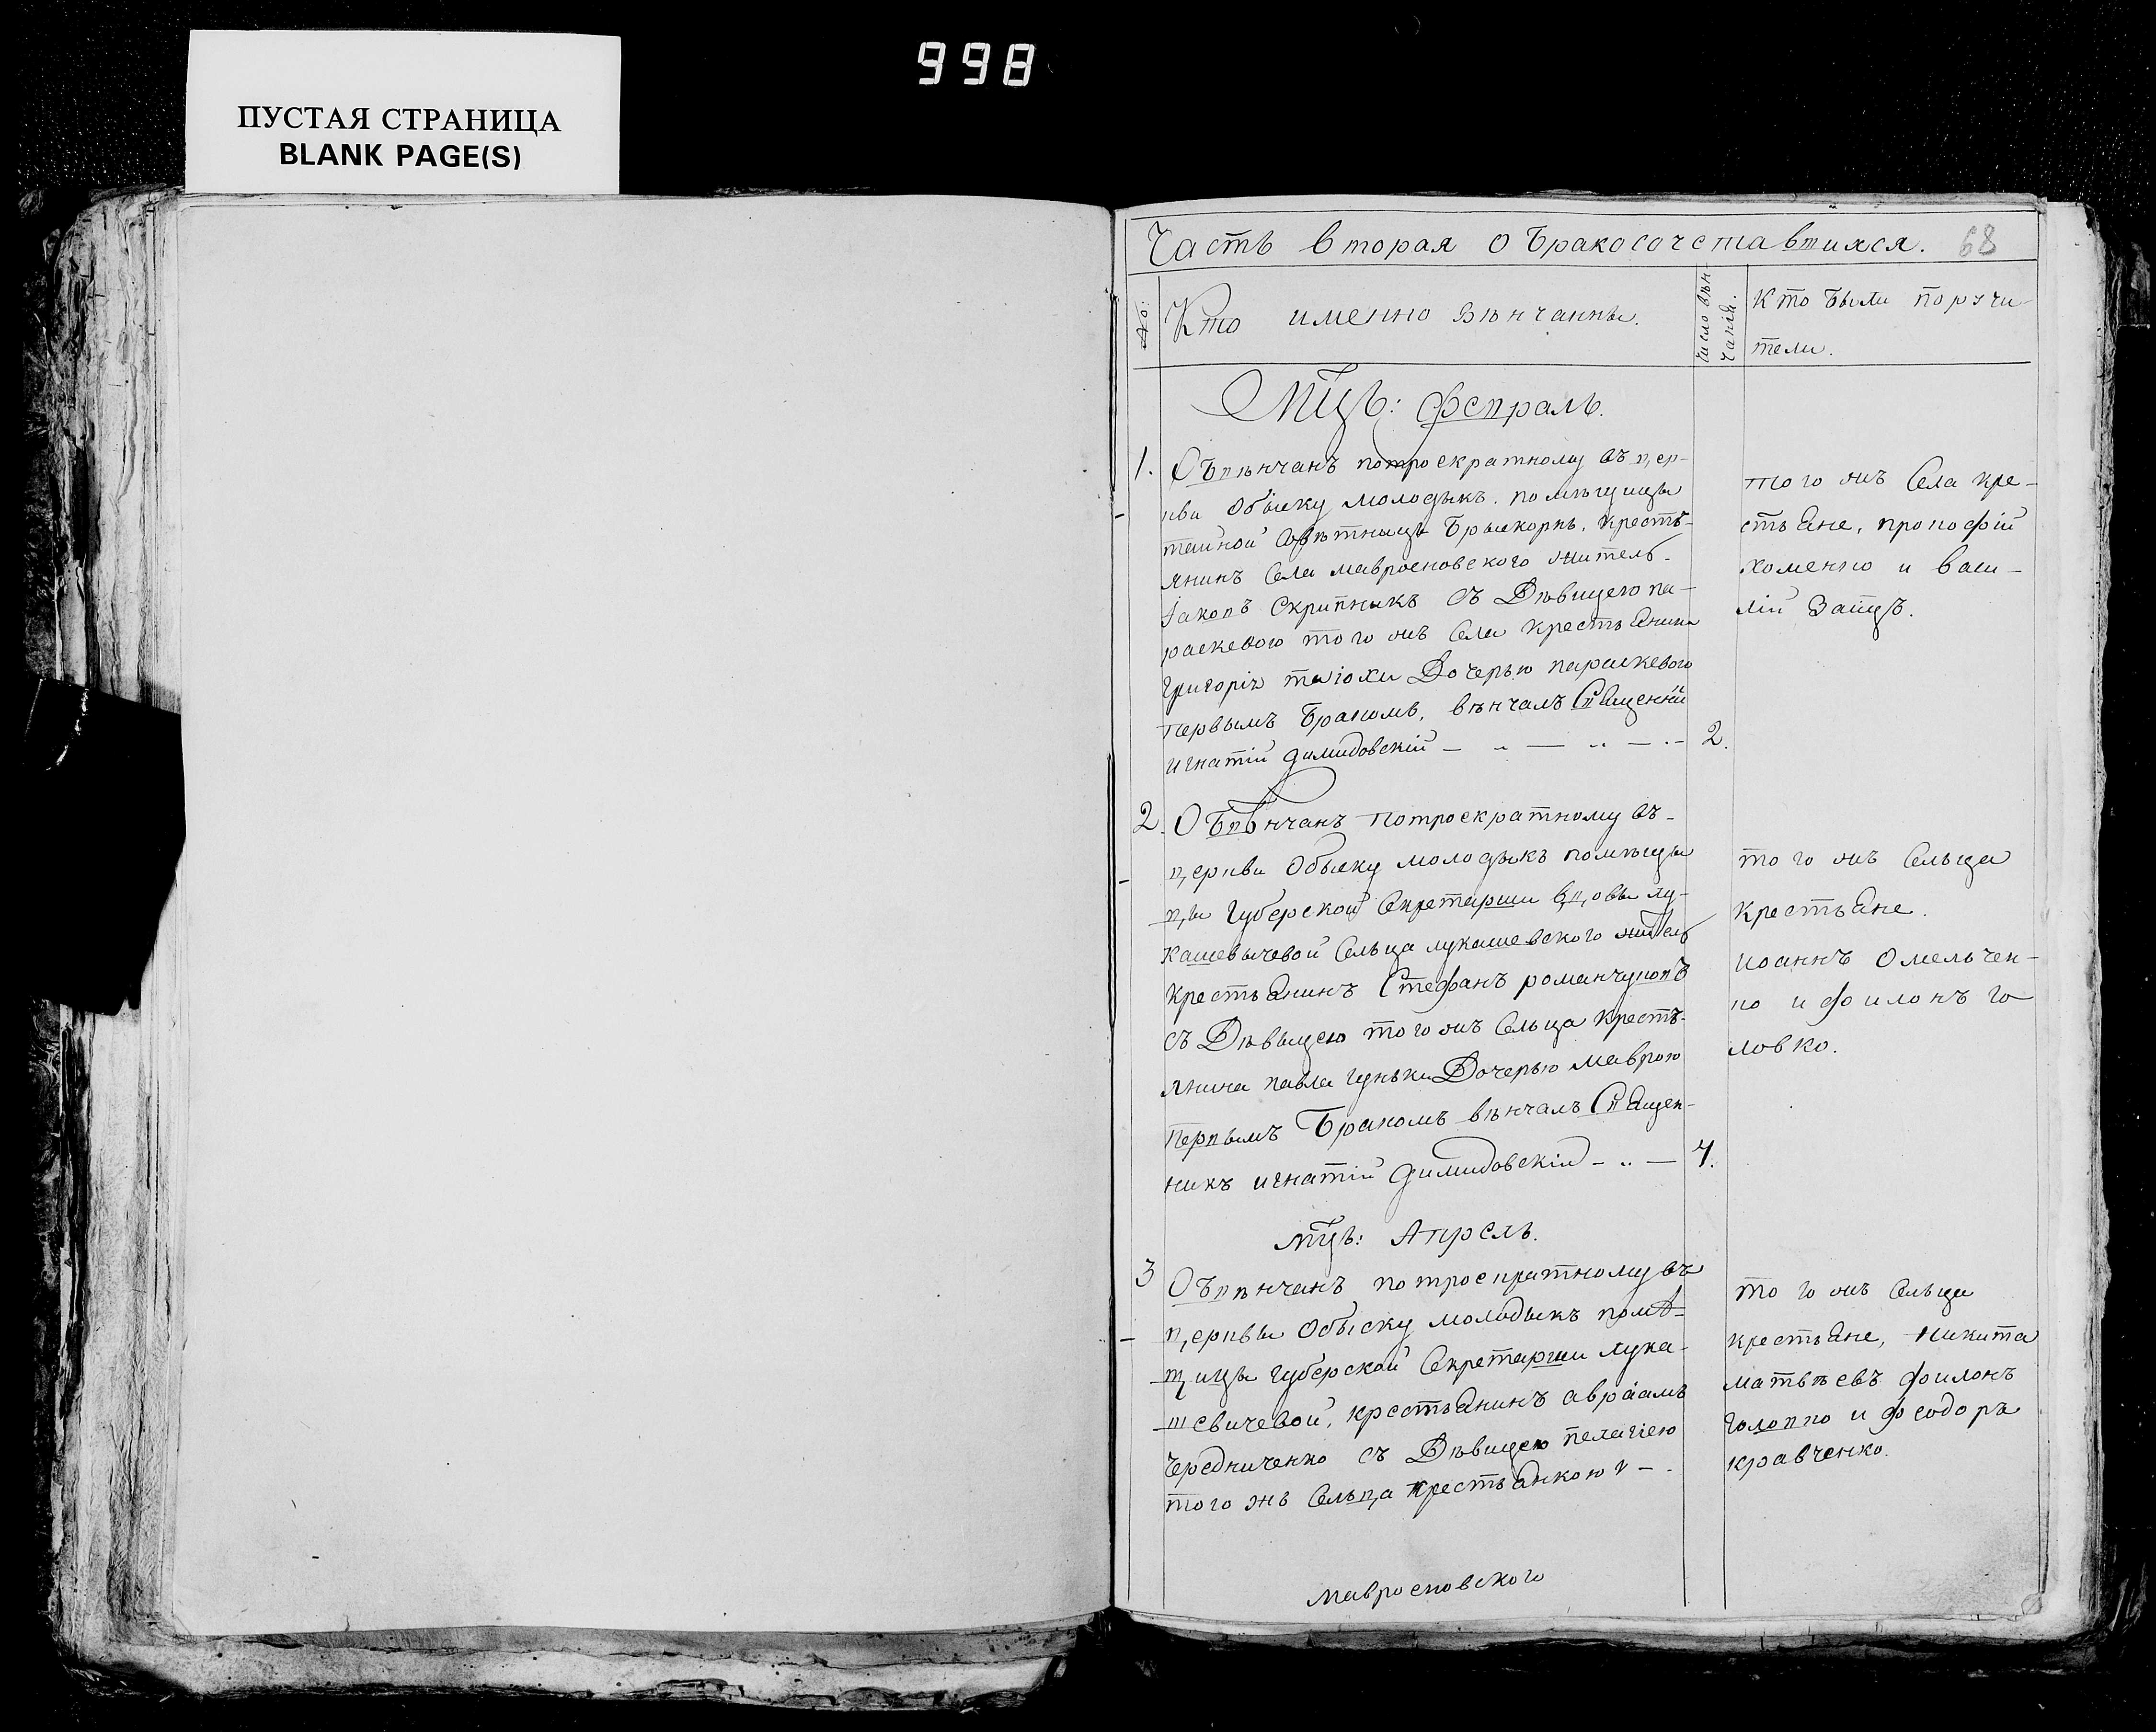 998
ПУСТАЯ СТРАНИЦА
BLANK PAGE(S)
Часть вторая о Бракосочетавшихся. 68
№:
Кто именно вѣнчанны.
Число вѣн
чанія.
Кто были поручи
тели.
Мцъ: февраль.
1. Объвѣнчанъ потроекратному въ цер-
кви обыску молодыкъ помѣщицы
тайной совѣтницы крестъ-
янинъ Села мавроеновского житель
Іаковъ Скрипникъ съ Дѣвицею па-
раскевою того жъ Села крестьянина
григорія Дочерью параскевою
первымъ Бракомъ, вѣнчалъ Священній
игнатій димидовскій — „ — „ — - 2.
того жъ Села кре-
стьяне, прокофій
хоменко и васи-
лій Заицъ.
2. Обвѣнчанъ потроекратному въ-
церкви обыску молодыкъ помѣщи
цы губерской Секретарши вдовы лу-
кашевычевой Сельца лукашевского житель
крестьянинъ Стефанъ романчуковъ
съ Дѣвыцею того жъ Сельца крестъ-
янина павла гуньки Дочерью маврою
первымъ Бракомъ вѣнчалъ Священ-
никъ игнатій димидовскій - „ — 4.
того жъ Сельца
крестьяне.
иоаннъ омельчен-
ко и филонъ го
ловко.
мцъ: Апрель.
3 Объвѣнчанъ потроекратному въ
церквы обыску молодыкъ помѣ-
щицы губерской Секретарши лука-
шевичевой, крестьянинъ авраамъ
Чередниченко съ Дѣвицею пелагіею
того жъ Сельца крестьянкою
того жъ Сельца
крестьяне, никита
матвѣевъ филонъ
головко и феодоръ
кравченко.
мавроеновского